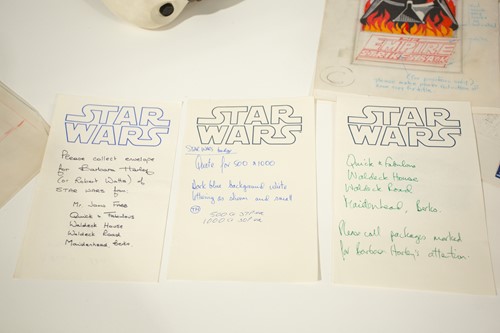 STAR
WARS
Please collect envelope
for Barbara Harley
(or Robert Watts) of
STAR WARS from
Mr. John Free
Quick & Fabulous
Waldeck House
Waldeck Road
Maidenhead, Berks
STAR
WARS
STAR WARS badge
Quote for 500 & 1000
Dark blue background white
lettering as shown and small
STAR
WARS
Quick & Fabulous
Waldeck House
Waldeck Road
Maidenhead, Berks.
Please call packages marked
for Barbara Harley's attention.
EMPIRE
STRIKES BACK